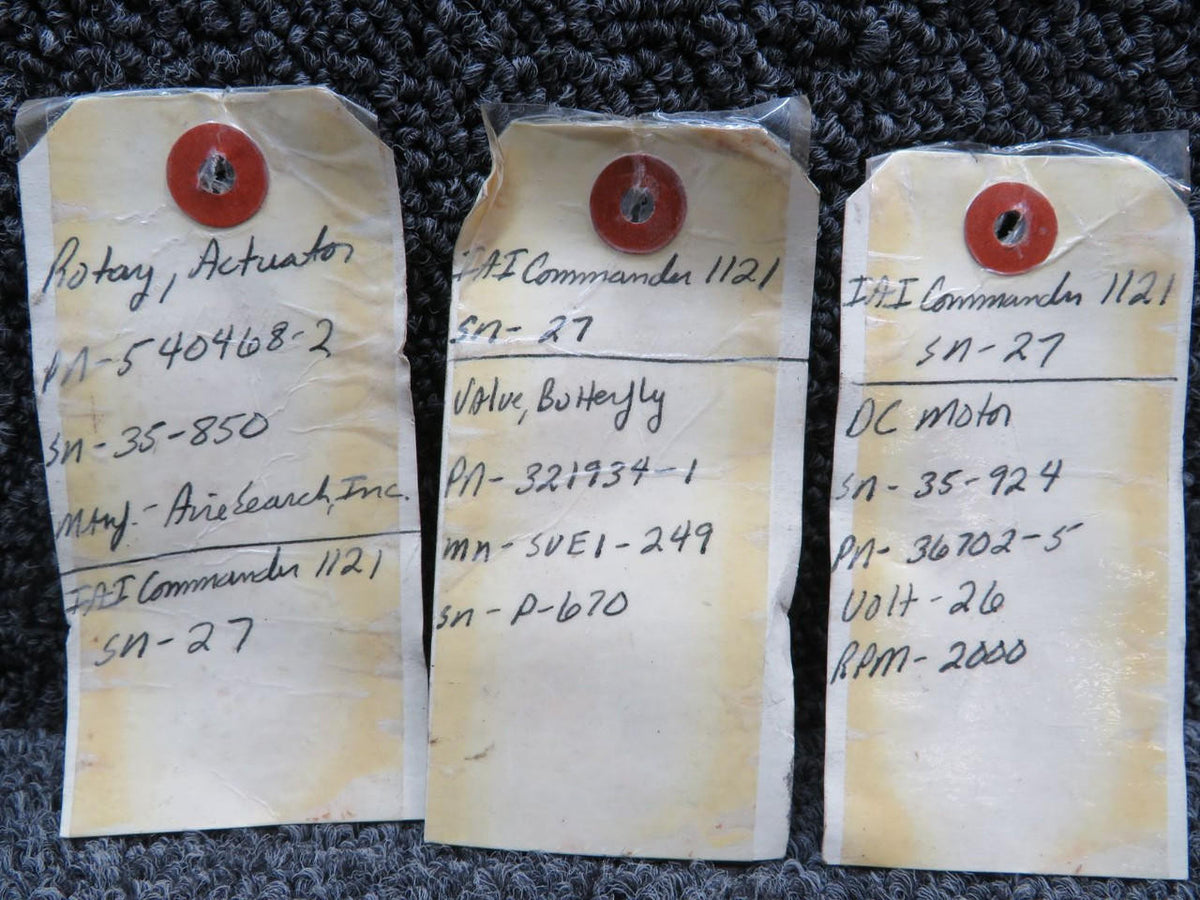 Rotary, Actuator
PN-540468-2
SN-35-850
Manf.- AireSearch, Inc.
IAI Commander 1121
SN-27
IAI Commander 1121
SN-27
Valve, Butterfly
PN-321934-1
MN-SVE1-249
SN-P-670
IAI Commander 1121
SN-27
DC Motor
SN-35-924
PN-36702-5
Volt-26
RPM-2000